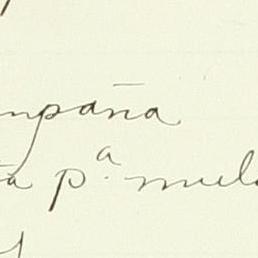 mpaña
ta pª. mula